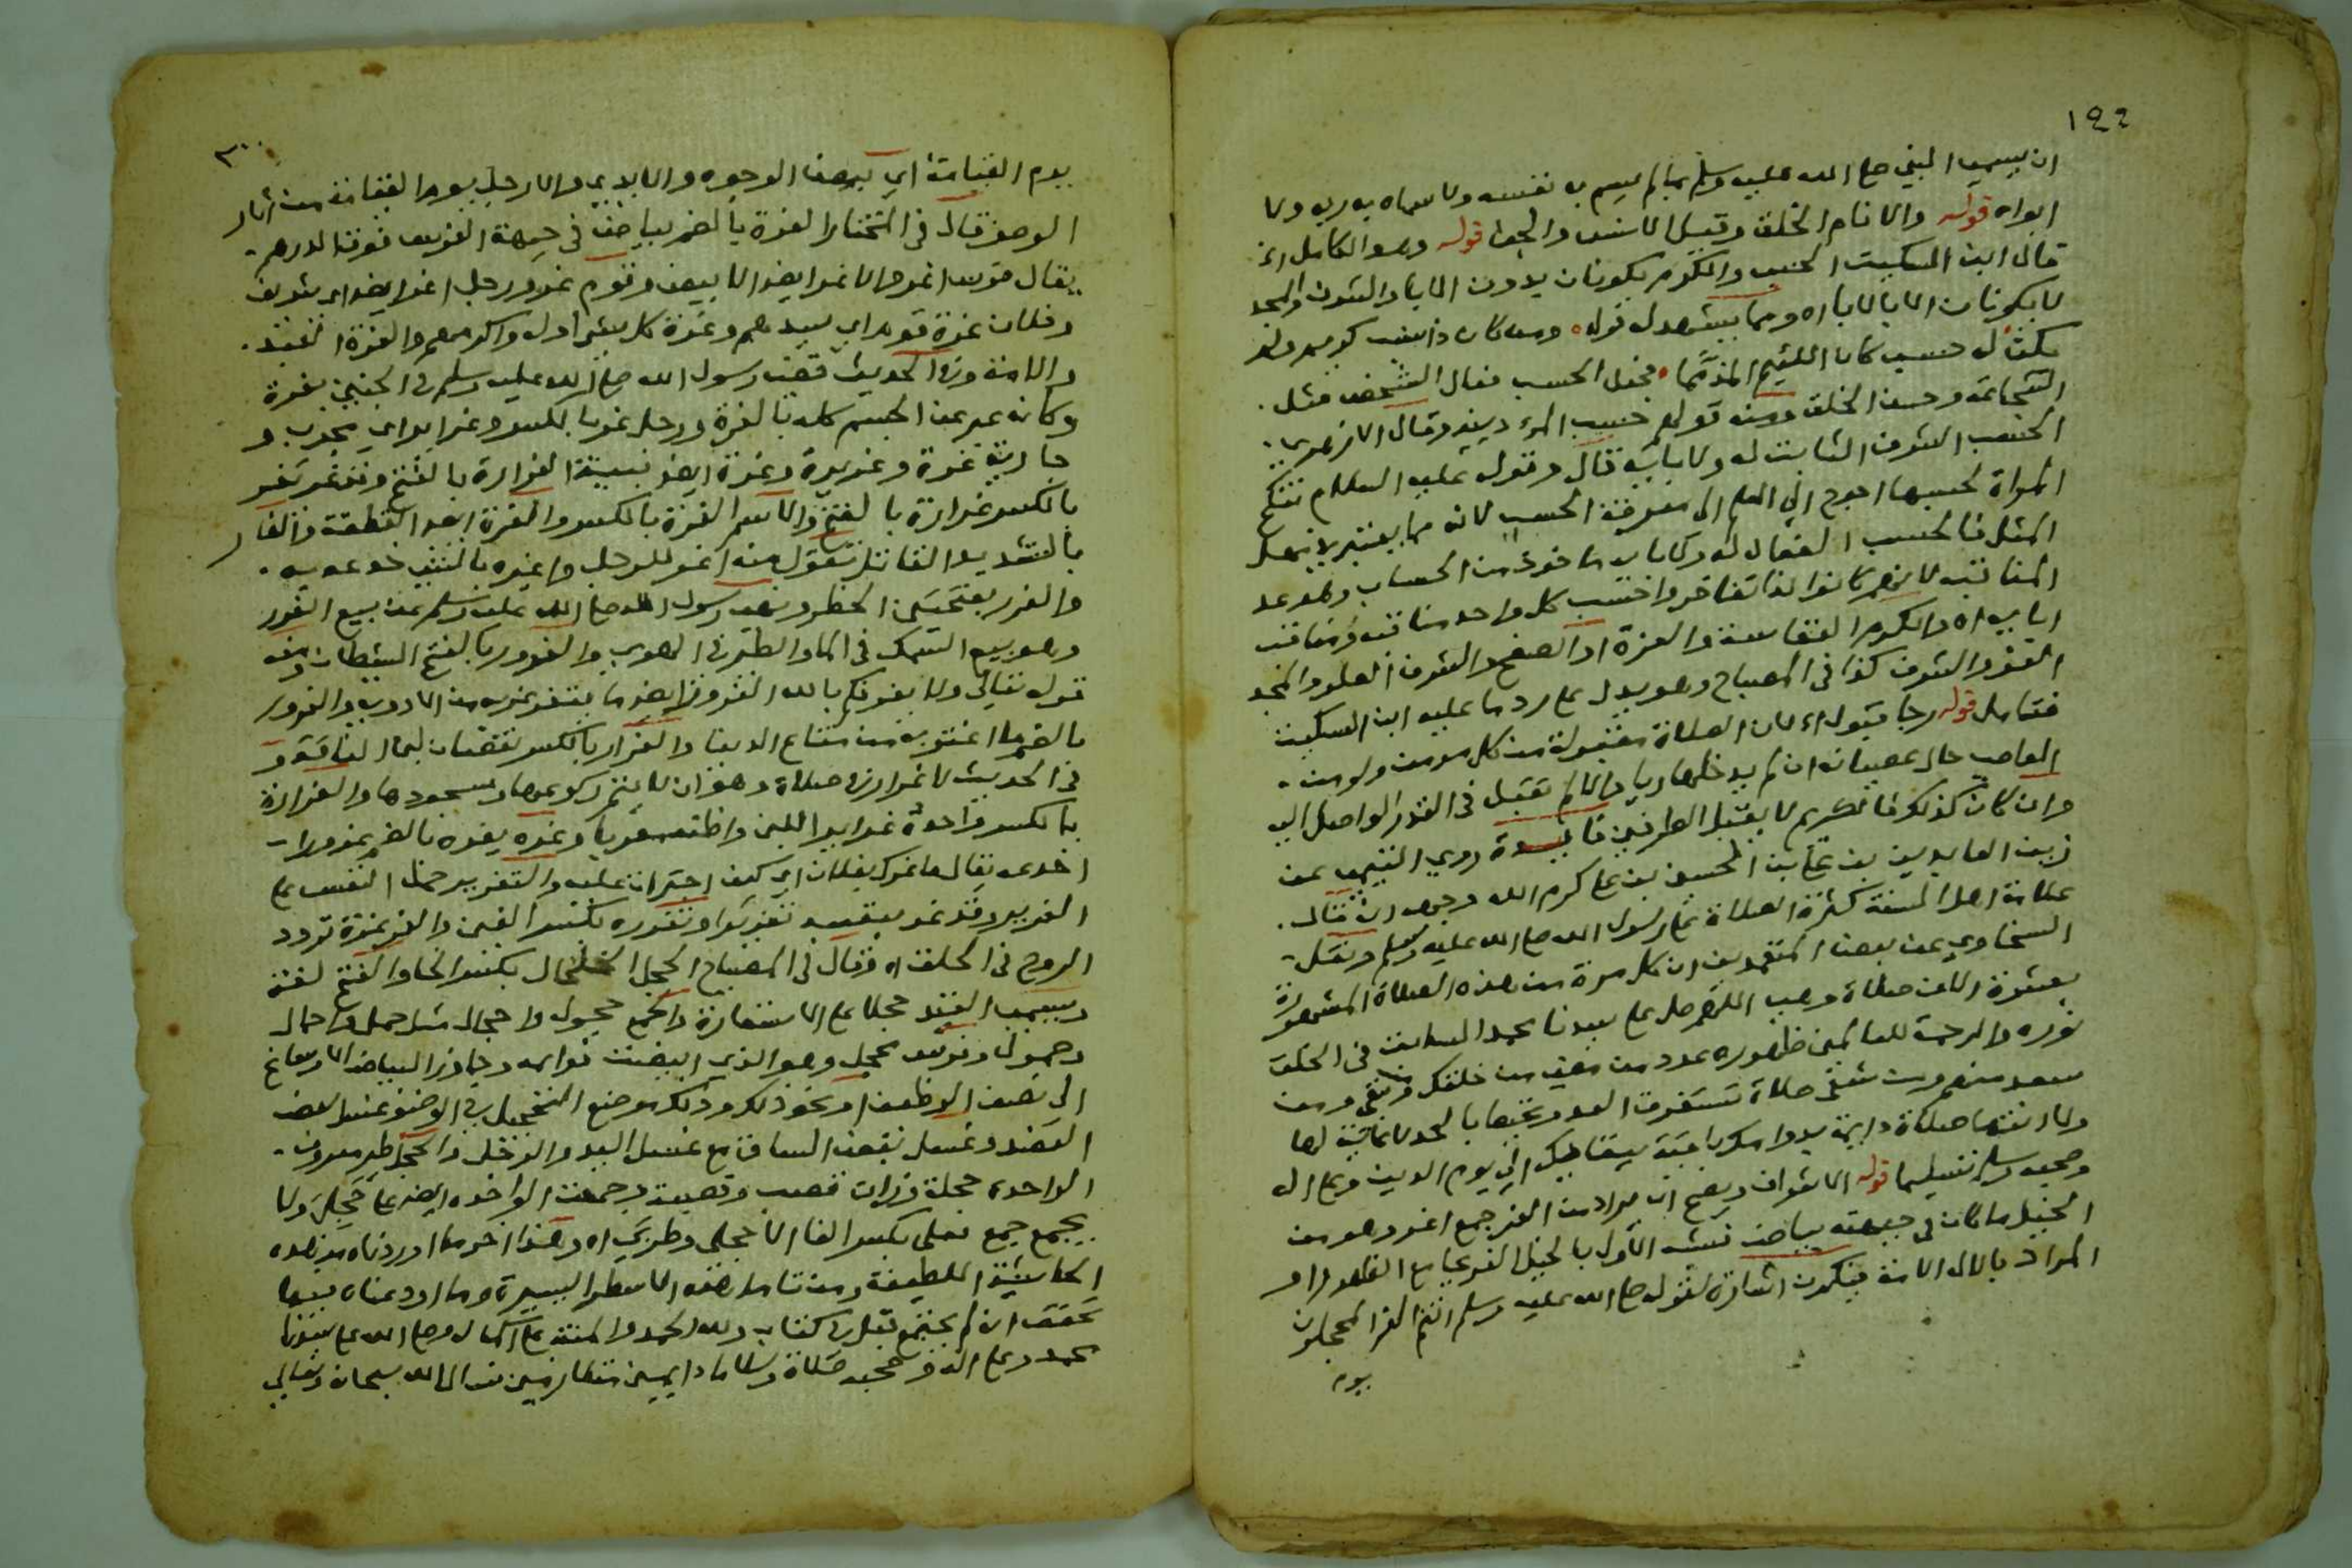 ١٤٤
ان يسمى النبي صلى الله عليه وسلم بما لم يسم به نفسه ولا سماه به ربه ولا
ابواه قوله والانام الخلق وقيل الانس والجن قوله وهو الكامل الخ
قال ابن السكيت الحسب والكرم يكونان بدون الآبا والشرف والمجد
لا يكونان الا بالآباء اه ومما يشهد له قوله ومن كان ذا نسب كريم ولم
يكن له حسب كان اللئيم المذمما فجعل الحسب فعال الشخص مثل
الشجاعة وحسن الخلق ومنه قولهم حسب المرء دينه وقال الازهري
الحسب الشرف الثابت له ولابائه قال وقوله عليه السلام تنكح
المراة لحسبها احوج اهل العلم الى معرفة الحسب لانه مما يعتبر في مهر
المثل فالحسب الفعال له ولابائه ماخوذ من الحساب وهو عد
المناقب لانهم كانوا اذا تفاخروا حسب كل واحد مناقبه ومناقب
ابايه اه والكرم النفاسة والعزة او الصفح والشرف العلو والمجد
العز والشرف كذا في المصباح وهو يدل على رد ما عليه ابن السكيت
فتامل قوله رجا قبوله الخ لان الصلاة مقبولة من كل مومن ولو من
العاصي حال عصيانه ان لم يدخلها ريا والا لم تقبل في القدر الواصل اليه
وان كان كذلك فالكريم لا يقبل الطرفين فايدة روي التيمي عن
زين العابدين بن علي بن الحسين بن علي كرم الله وجهه انه قال
علامة اهل السنة كثرة الصلاة على رسول الله صلى الله عليه وسلم ونقل
السخاوي عن بعض المتقدمين ان كل مرة من هذه الصلاة المشهورة
بعشرة الاف صلاة وهي اللهم صل على سيدنا محمد السابق في الخلق
نوره والرحمة للعالمين ظهوره عدد من مضى من خلقك ومن بقي ومن
سعد منهم ومن شقي صلاة تستغرق العد وتحيط بالحد لا غاية لها
ولا انتها صلاة دايمة بدوامك باقية ببقائك الى يوم الدين وعلى اله
وصحبه وسلم تسليما قوله الاشراف ويصح ان يراد من الغر جمع اغر وهو من
الخيل ما كان في جبهته بياض شبه الآول بالخيل الغر بجامع الظهور او
المراد بالال الامة فيكون اشارة لقوله صلى الله عليه وسلم انتم الغر المحجلون
يوم
٣٠٠
يوم القيامة اي بيض الوجوه والايدي والارجل يوم القيامة من اثار
الوضو قال في المختار الغرة بالضم بياض في جبهة الفرس فوق الدرهم
يقال فرس اغر والاغر ايضا الابيض وقوم غر ورجل اغر ايضا اي شريف
وفلان غرة قومه اي سيدهم وغرة كل شي اوله واكرمه والغرة العبد
والامة وفي الحديث قضى رسول الله صلى الله عليه وسلم في الجنين بغرة
وكانه عبر عن الجسم كله بالغرة ورجل غر بالكسر وغرير اي غير مجرب و
جارية غرة وغريرة وغرة ايضا بينة الغرارة بالفتح وقد غر يغر
بالكسر غرارة بالفتح والاسم الغرة بالكسر والغرة ايضا الغفلة والغار
بالتشديد الغافل تقول منه اغتر الرجل واغتر بالشي خدع به
والغرر بفتحتين الخطر ونهى رسول الله صلى الله عليه وسلم عن بيع الغرر
وهو بيع السمك في الما والطير في الهوى والغرور بالفتح الشيطان ومنه
قوله تعالى ولا يغرنكم بالله الغرور والغرور ايضا ما يتغرغر به من الادوية والغرور
بالضم ما اغتر به من متاع الدنيا والغرار بالكسر نقصان لبن الناقة و
في الحديث لا غرار في صلاة وهو ان لا يتم ركوعها وسجودها والغرارة
بالكسر واحدة غراير التبن واظنه معربا وغره يغره بالضم غرورا
خدعه يقال ما غرك بفلان اي كيف اجترات عليه والتغرير حمل النفس على
الغرر وقد غرر بنفسه تغريرا وتغرة بكسر الغين والغرغرة تردد
الروح في الحلق اه وقال في المصباح الحجل الخلخال بكسر الحا والفتح لغة
ويسمى القيد حجلا على الاستعارة والجمع حجول واحجال مثل حمل واحمال
وحمول وفرس محجل وهو الذي ابيضت قوايمه وجاوز البياض الارساغ
الى نصف الوظيف او نحو ذلك وذلك موضع التحجيل في الوضو غسل بعض
العضد وغسل بعض الساق مع غسل اليد والرجل والحجل طير معروف
الواحدة حجلة وزان قصب وقصبة وجمعت الواحدة ايضا على حجلى ولا
يجمع جمع فعلى بكسر الفا الا حجلى وظربى اه وهذا اخر ما اوردناه من هذه
الحاشية اللطيفة ومن تامل هذه الاسطر اليسيرة وما اودعناه فيها
تحقق انه لم يجتمع قبل في كتاب ولله الحمد والمنة على الكمال وصلى الله على سيدنا
محمد وعلى اله وصحبه صلاة وسلاما دايمين متلازمين من الله سبحانه وتعالى